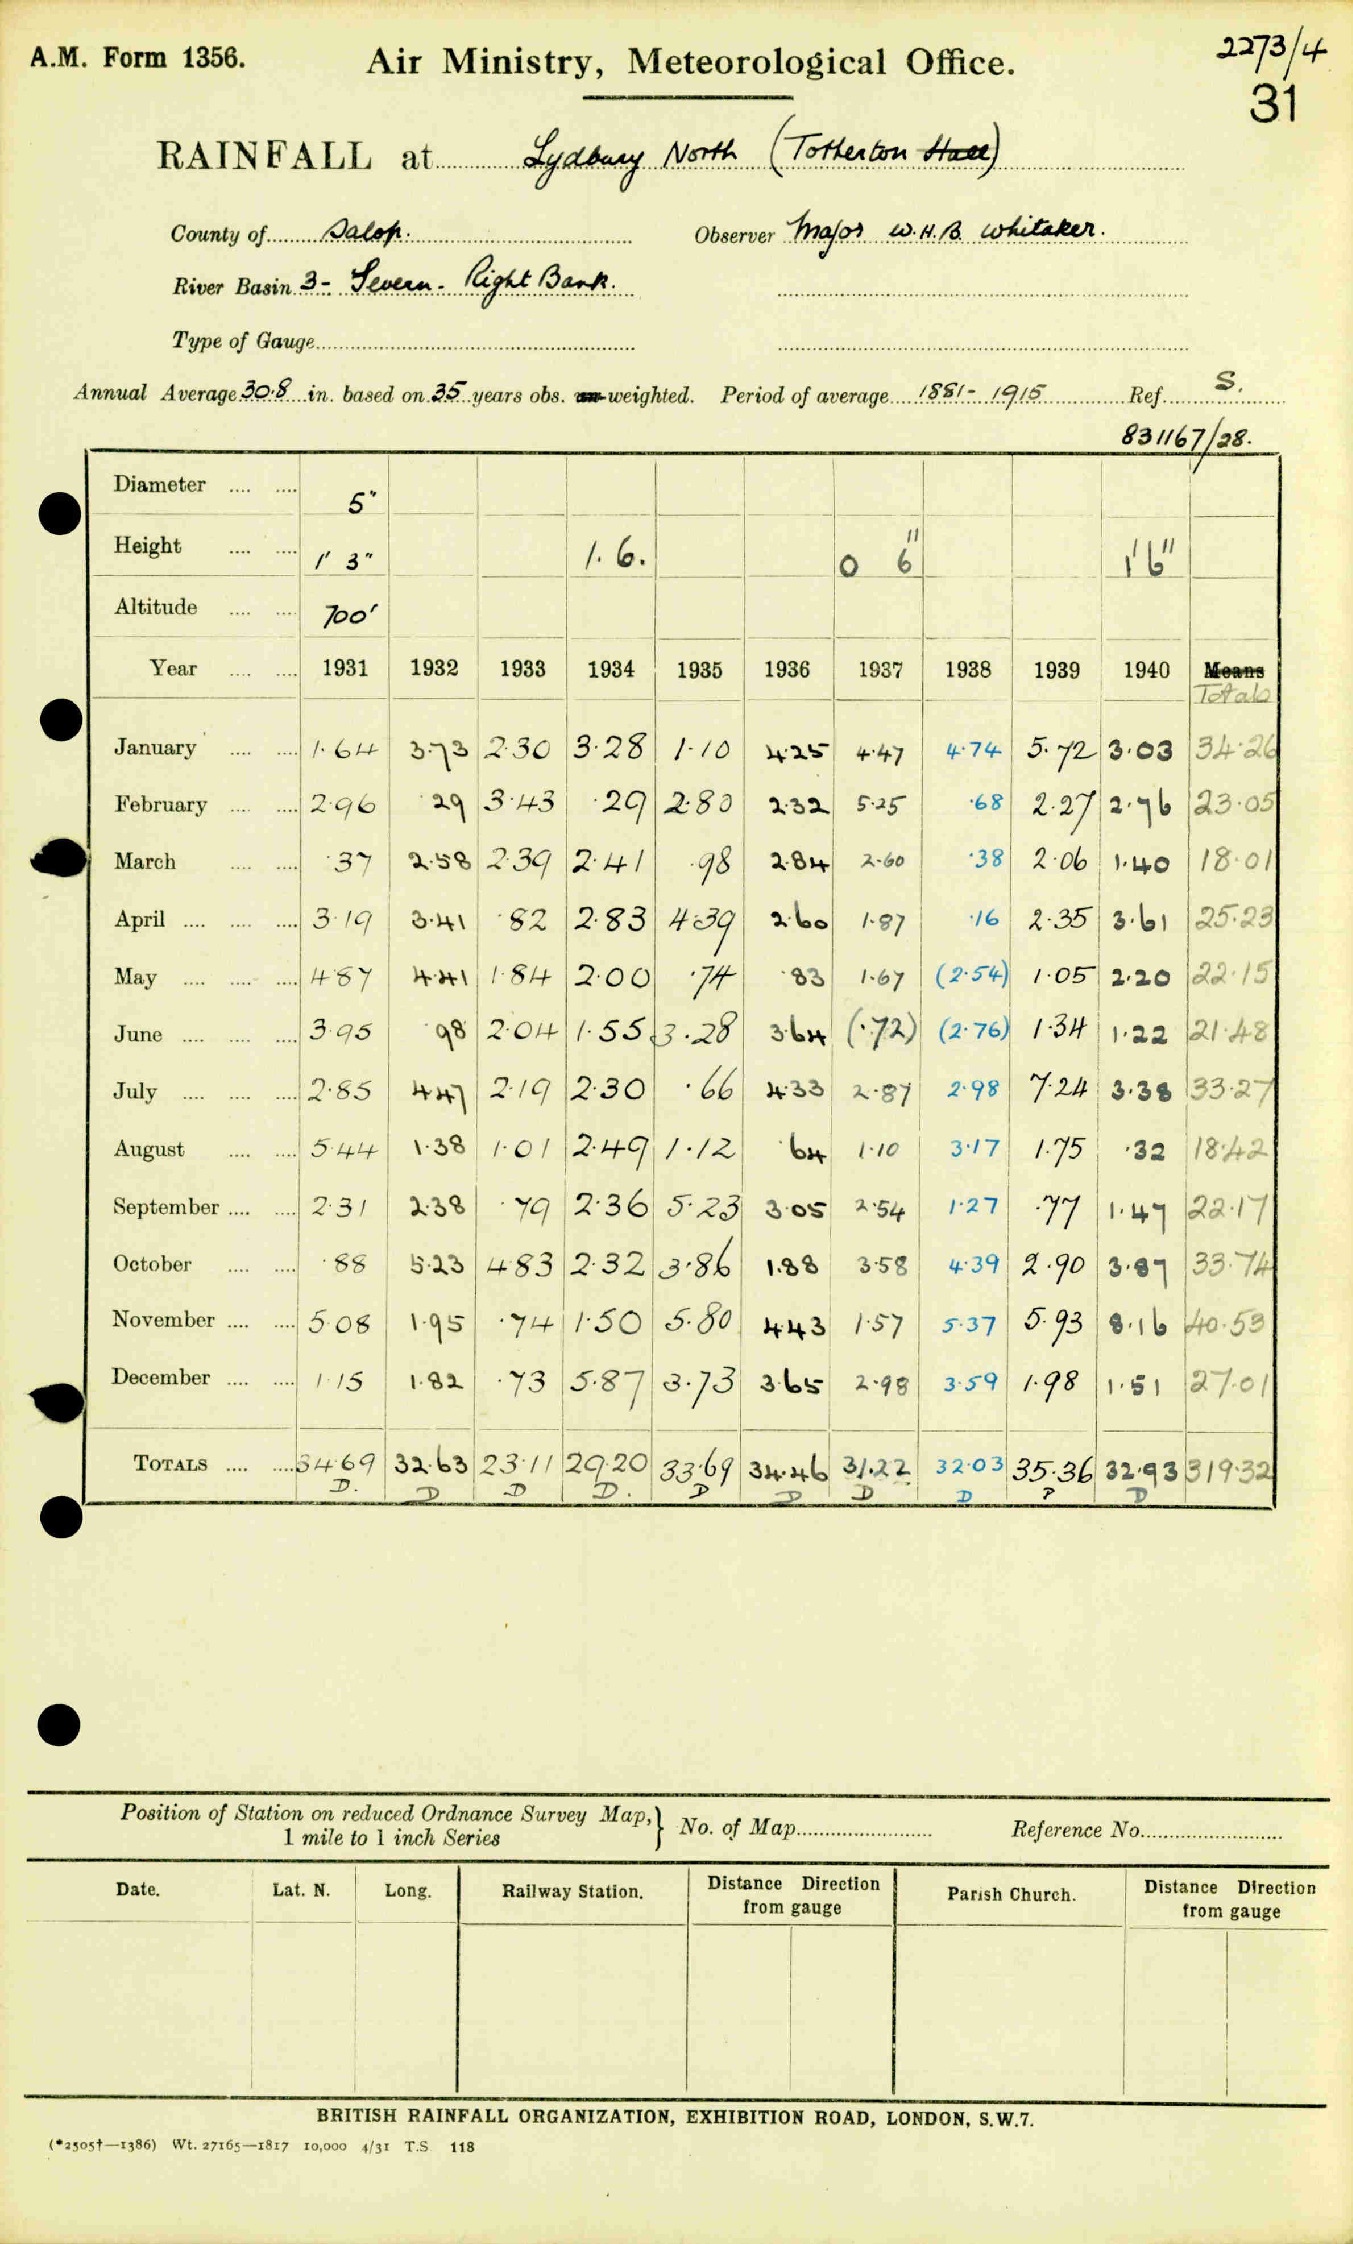 A.M. Form 1356. Air Ministry, Meteorological Office. 2273/4
31
RAINFALL at Lydbury North (Totterton Hall)
County of Salop. Observer Major W.H.B. Whitaker.
River Basin 3- Severn- Right Bank.
Type of Gauge
Annual Average 30·8 in. based on 35 years obs. weighted. Period of average 1881- 1915 Ref. S.
831167/28.
Diameter 5"
Height 1' 3" 1. 6. 0 6" 1'6"
Altitude 700'
Year 1931 1932 1933 1934 1935 1936 1937 1938 1939 1940 Means
Totals
January 1·64 3·73 2·30 3·28 1·10 4·25 4·47 4·74 5·72 3·03 34·26
February 2·96 ·29 3·43 ·29 2·80 2·32 5·25 ·68 2·27 2·76 23·05
March ·37 2·58 2·39 2·41 ·98 2·84 2·60 ·38 2·06 1·40 18·01
April 3·19 3·41 ·82 2·83 4·39 2·60 1·87 ·16 2·35 3·61 25·23
May 4·87 4·41 1·84 2·00 ·74 ·83 1·67 (2·54) 1·05 2·20 22·15
June 3·95 ·98 2·04 1·55 3·28 3·64 (·72) (2·76) 1·34 1·22 21·48
July 2·85 4·47 2·19 2·30 ·66 4·33 2·87 2·98 7·24 3·38 33·27
August 5·44 1·38 1·01 2·49 1·12 ·64 1·10 3·17 1·75 ·32 18·42
September 2·31 2·38 ·79 2·36 5·23 3·05 2·54 1·27 ·77 1·47 22·17
October ·88 5·23 4·83 2·32 3·86 1·88 3·58 4·39 2·90 3·87 33·74
November 5·08 1·95 ·74 1·50 5·80 4·43 1·57 5·37 5·93 8·16 40·53
December 1·15 1·82 ·73 5·87 3·73 3·65 2·98 3·59 1·98 1·51 27·01
TOTALS 34·69 32·63 23·11 29·20 33·69 34·46 31·22 32·03 35·36 32·93 319·32
D. D D D. D D D D P D
Position of Station on reduced Ordnance Survey Map,} No. of Map Reference No.
1 mile to 1 inch Series
Date. Lat. N. Long. Railway Station. Distance Direction Parish Church. Distance Direction
from gauge from gauge
BRITISH RAINFALL ORGANIZATION, EXHIBITION ROAD, LONDON, S.W.7.
(*2505†—1386) Wt. 27165—1817 10,000 4/31 T.S. 118